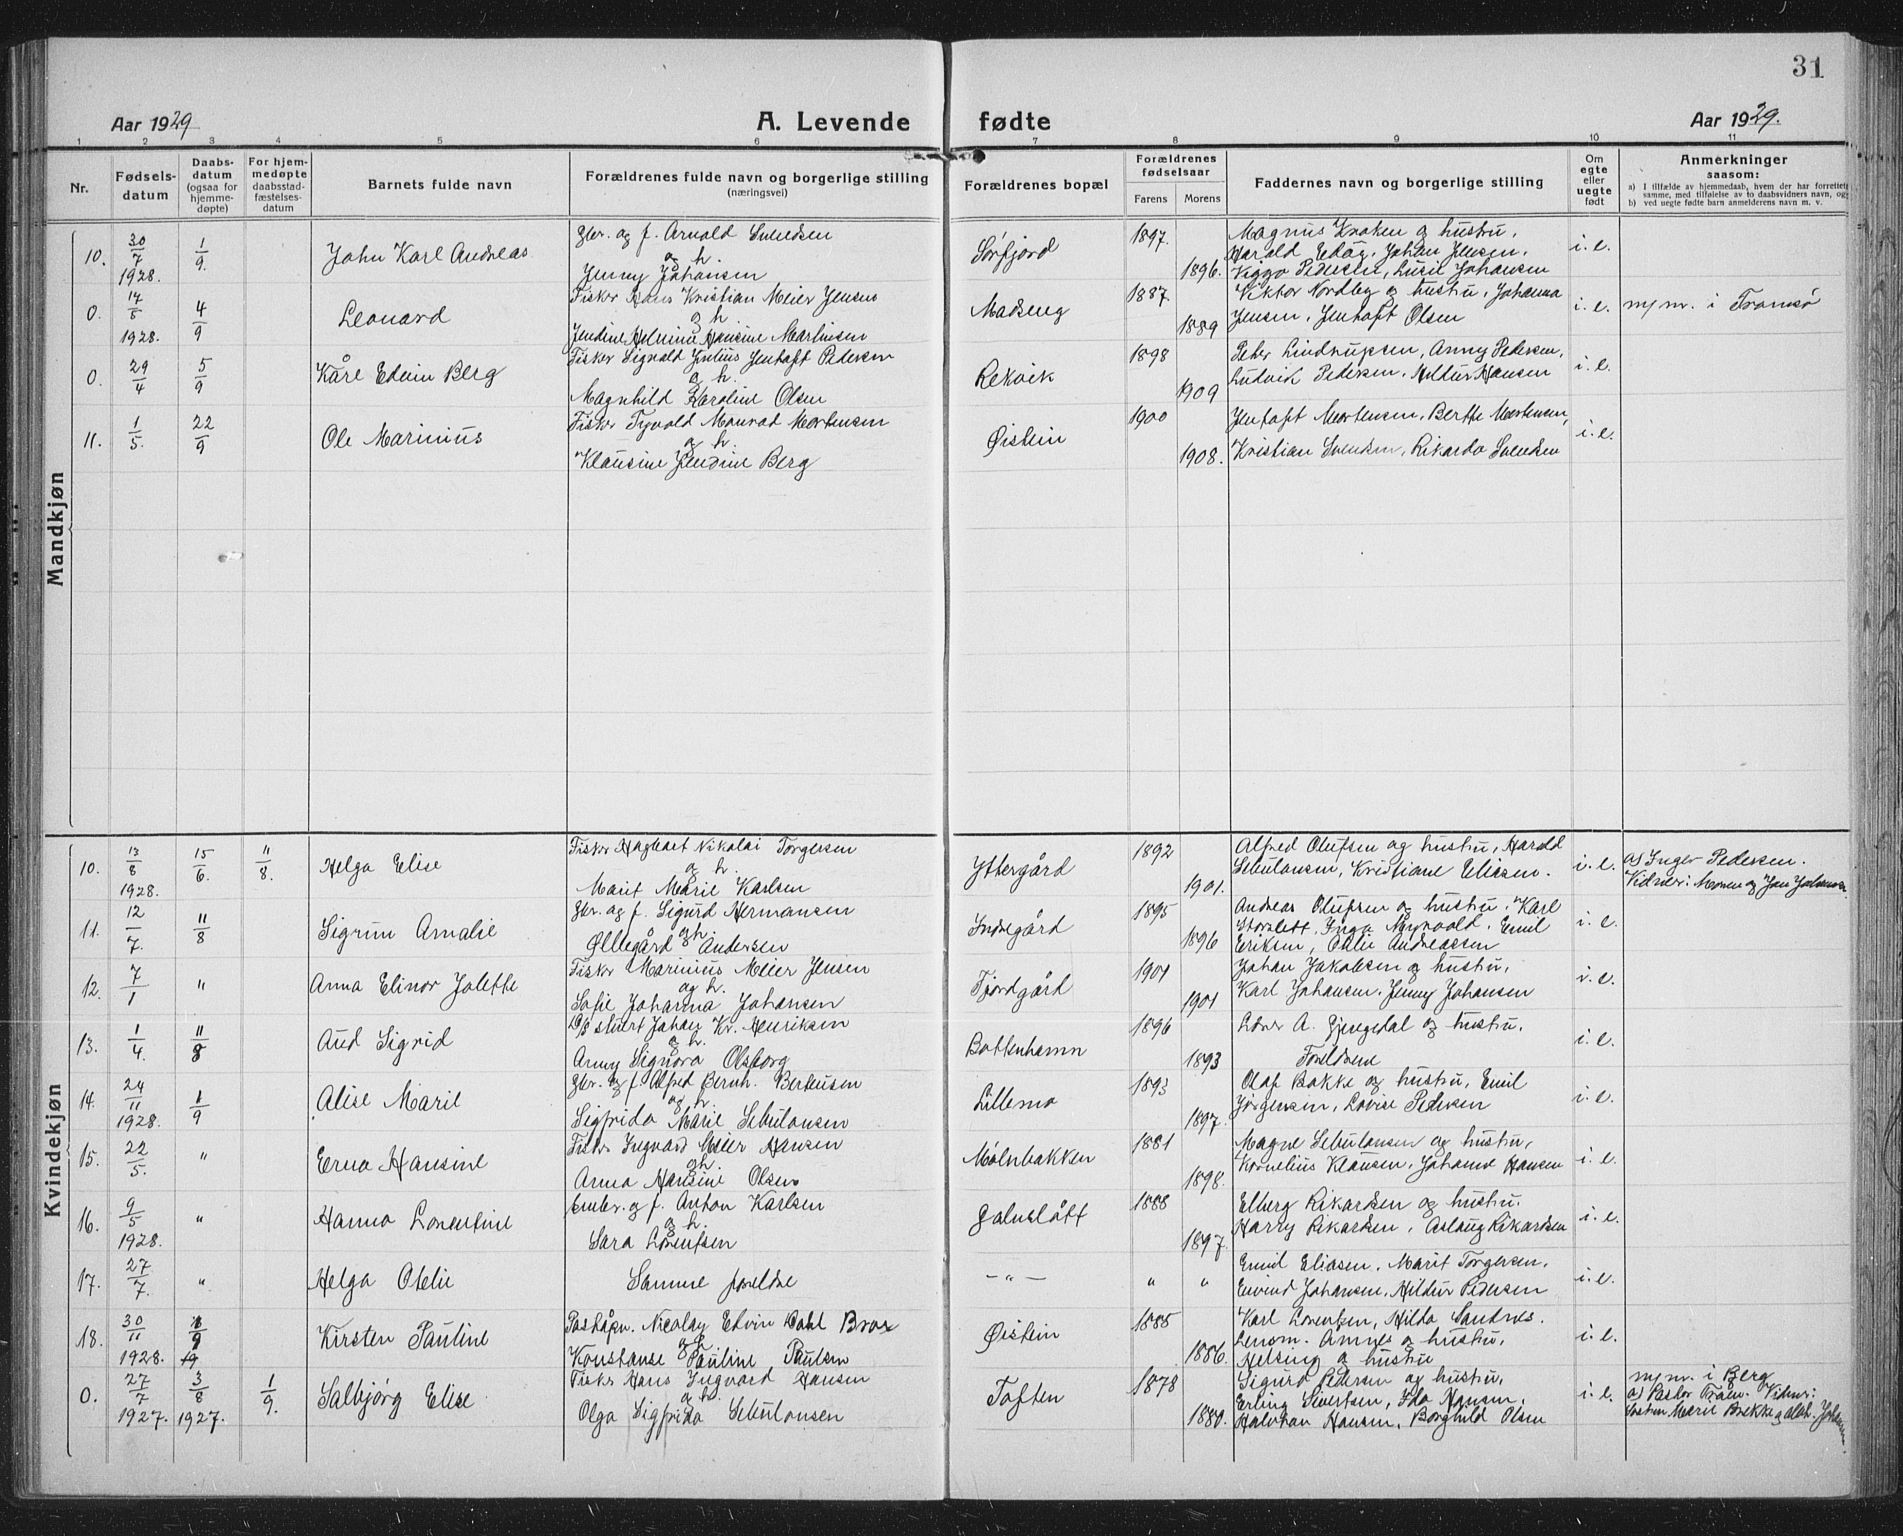 31
Aar 1929
A. Levende fødte
Aar 1929.
1 2 3 4 5 6 7 8 9 10 11
Nr.
Fødsels-
datum
Daabs-
datum
(ogsaa for
hjemme-
døpte)
For hjem-
medøpte
daabsstad-
fæstelses-
datum
Barnets fulde navn
Forældrenes fulde navn og borgerlige stilling
(næringsvei)
Forældrenes bopæl
Forældrenes
fødselsaar
Farens Morens
Faddernes navn og borgerlige stilling
Om
egte
eller
uegte
født
Anmerkninger
saasom:
a) I tilfælde av hjemmedaab, hvem der har forrettet
samme, med tilføielse av to daabsvidners navn, og
b) ved uegte fødte barn anmelderens navn m. v.
Mandkjøn
10. 30/7 1928. 1/9. John Karl Andreas
Gbr. og f. Arnold Svendsen
og h.
Jenny Johansen
Sørfjord 1897. 1896.
Magnus Kroken og hustru,
Harald Edøy, Johan Jensen,
Viggo Pedersen, Lucie Johansen
i. e.
0. 14/8 1928. 4/9 Leonard
Fisker Hans Kristian Meier Jensen
og h.
Jendine Helmine Hansine Martinsen
Madseng 1887 1889
Viktor Nordby og hustru, Johanna
Jensen, Jenhaft Olsen
i. e. m/nr. i Tromsø
0. 29/4 5/9 Kåre Edvin Berg
Fisker Sigvald Julius Jenhaft Pedersen
og h.
Magnhild Karoline Olsen
Rekvik 1898 1909
Peter Lindrupsen, Anny Pedersen,
Ludvik Pedersen, Hildur Hansen
i. e.
11. 1/5. 22/9 Ole Marinius
Fisker Trygvald Monrad Mortensen
og h.
Klausine Jendine Berg
Øistein 1900 1908.
Jenhaft Mortensen, Berthe Mortensen,
Kristian Svendsen, Rikarda Svendsen
i. e.
Kvindekjøn
10. 13/8 1928. 15/6. 11/8. Helga Elise
Fisker Hagbart Nikolai Torgersen
og h.
Marit Marie Karlsen
Yttergård 1892 1901.
Alfred Olufsen og hustru, Harald
Sebulonsen, Kristiane Eliasen.
i. e.
a) Inger Pedersen.
Vidner: Moren og Jan Johansen
11. 12/7. 11/8 Sigrun Amalie
Gbr. og f. Sigurd Hermansen
og h.
Øllegård Andersen
Indregård 1895 1896
Andreas Olufsen og hustru. Karl
Storslett, Inga Nyvold, Emil
Eriksen, Otelie Andreassen
i. e.
12. 7/1 " Anna Elinor Jolette
Fisker Marinius Meier Jensen
og h.
Sofie Johanna Johansen
Fjordgård 1901 1901
Johan Jakobsen og hustru,
Karl Johansen, Jenny Johansen
i. e.
13. 1/4. 11/8 Aud Sigrid
D/S stuert Johan Kr. Henriksen
og h.
Anny Signora Olsborg
Bottenhamn 1896 1893
Edvar A. Gjengedal og hustru.
Foreldrene
i. e.
14. 24/11 1928. 1/9 Alise Marie
Gbr. og f. Alfred Bernh. Berteusen
og h.
Sigfrida Marie Sebulonsen
Lillemo 1893 1897.
Olaf Bakke og hustru, Emil
Jørgensen, Lovise Pedersen
i. e.
15. 22/5. " Erna Hansine
Fisker Ingvard Meier Hansen
og h.
Anna Hansine Olsen
Mølnbakken 1881 1898.
Magne Sebulonsen og hustru,
Kornelius Klausen, Johanne Hansen
i. e.
16. 9/5 1928. " Hanna Lorentine
Ember. og f. Anton Karlsen
og h.
Sara Lorentsen
Galnslått 1888 1897.
Elberg Rikardsen og hustru.
Harry Rikardsen, Aslaug Rikardsen
i. e.
17. 27/7. " Helga Otelie
Samme foreldre
— " — " "
Emil Eliasen, Marit Torgersen,
Eivind Johansen, Hildur Pedersen
i. e.
18. 30/11 1928. 1/9 Kirsten Pauline
Poståpn. Nicolay Edvin Dahl Brox
og h.
Konstanse Pauline Paulsen
Øistein 1885 1886.
Karl Lorentsen, Hilda Sandnes.
Lensm. Amnes og hustru,
Helsing og hustru
i. e.
0. 27/7 1927. 3/8 1927. 1/9. Salbjørg Elise
Fisker Hans Ingvard Hansen
og h.
Olga Sigfrida Sebulonsen
Toften 1878 1880.
Sigurd Pedersen og hustru,
Erling Sivertsen, Ida Hansen,
Halvdan Hansen, Borghild Olsen
i. e.
m/nr. i Berg
a) Pastor Fraen. Vidner:
Marie Brekke og Johansen.